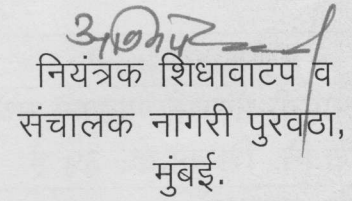 नियंत्रक शिधावाटप व
संचालक नागरी पुरवठा,
मुंबई.